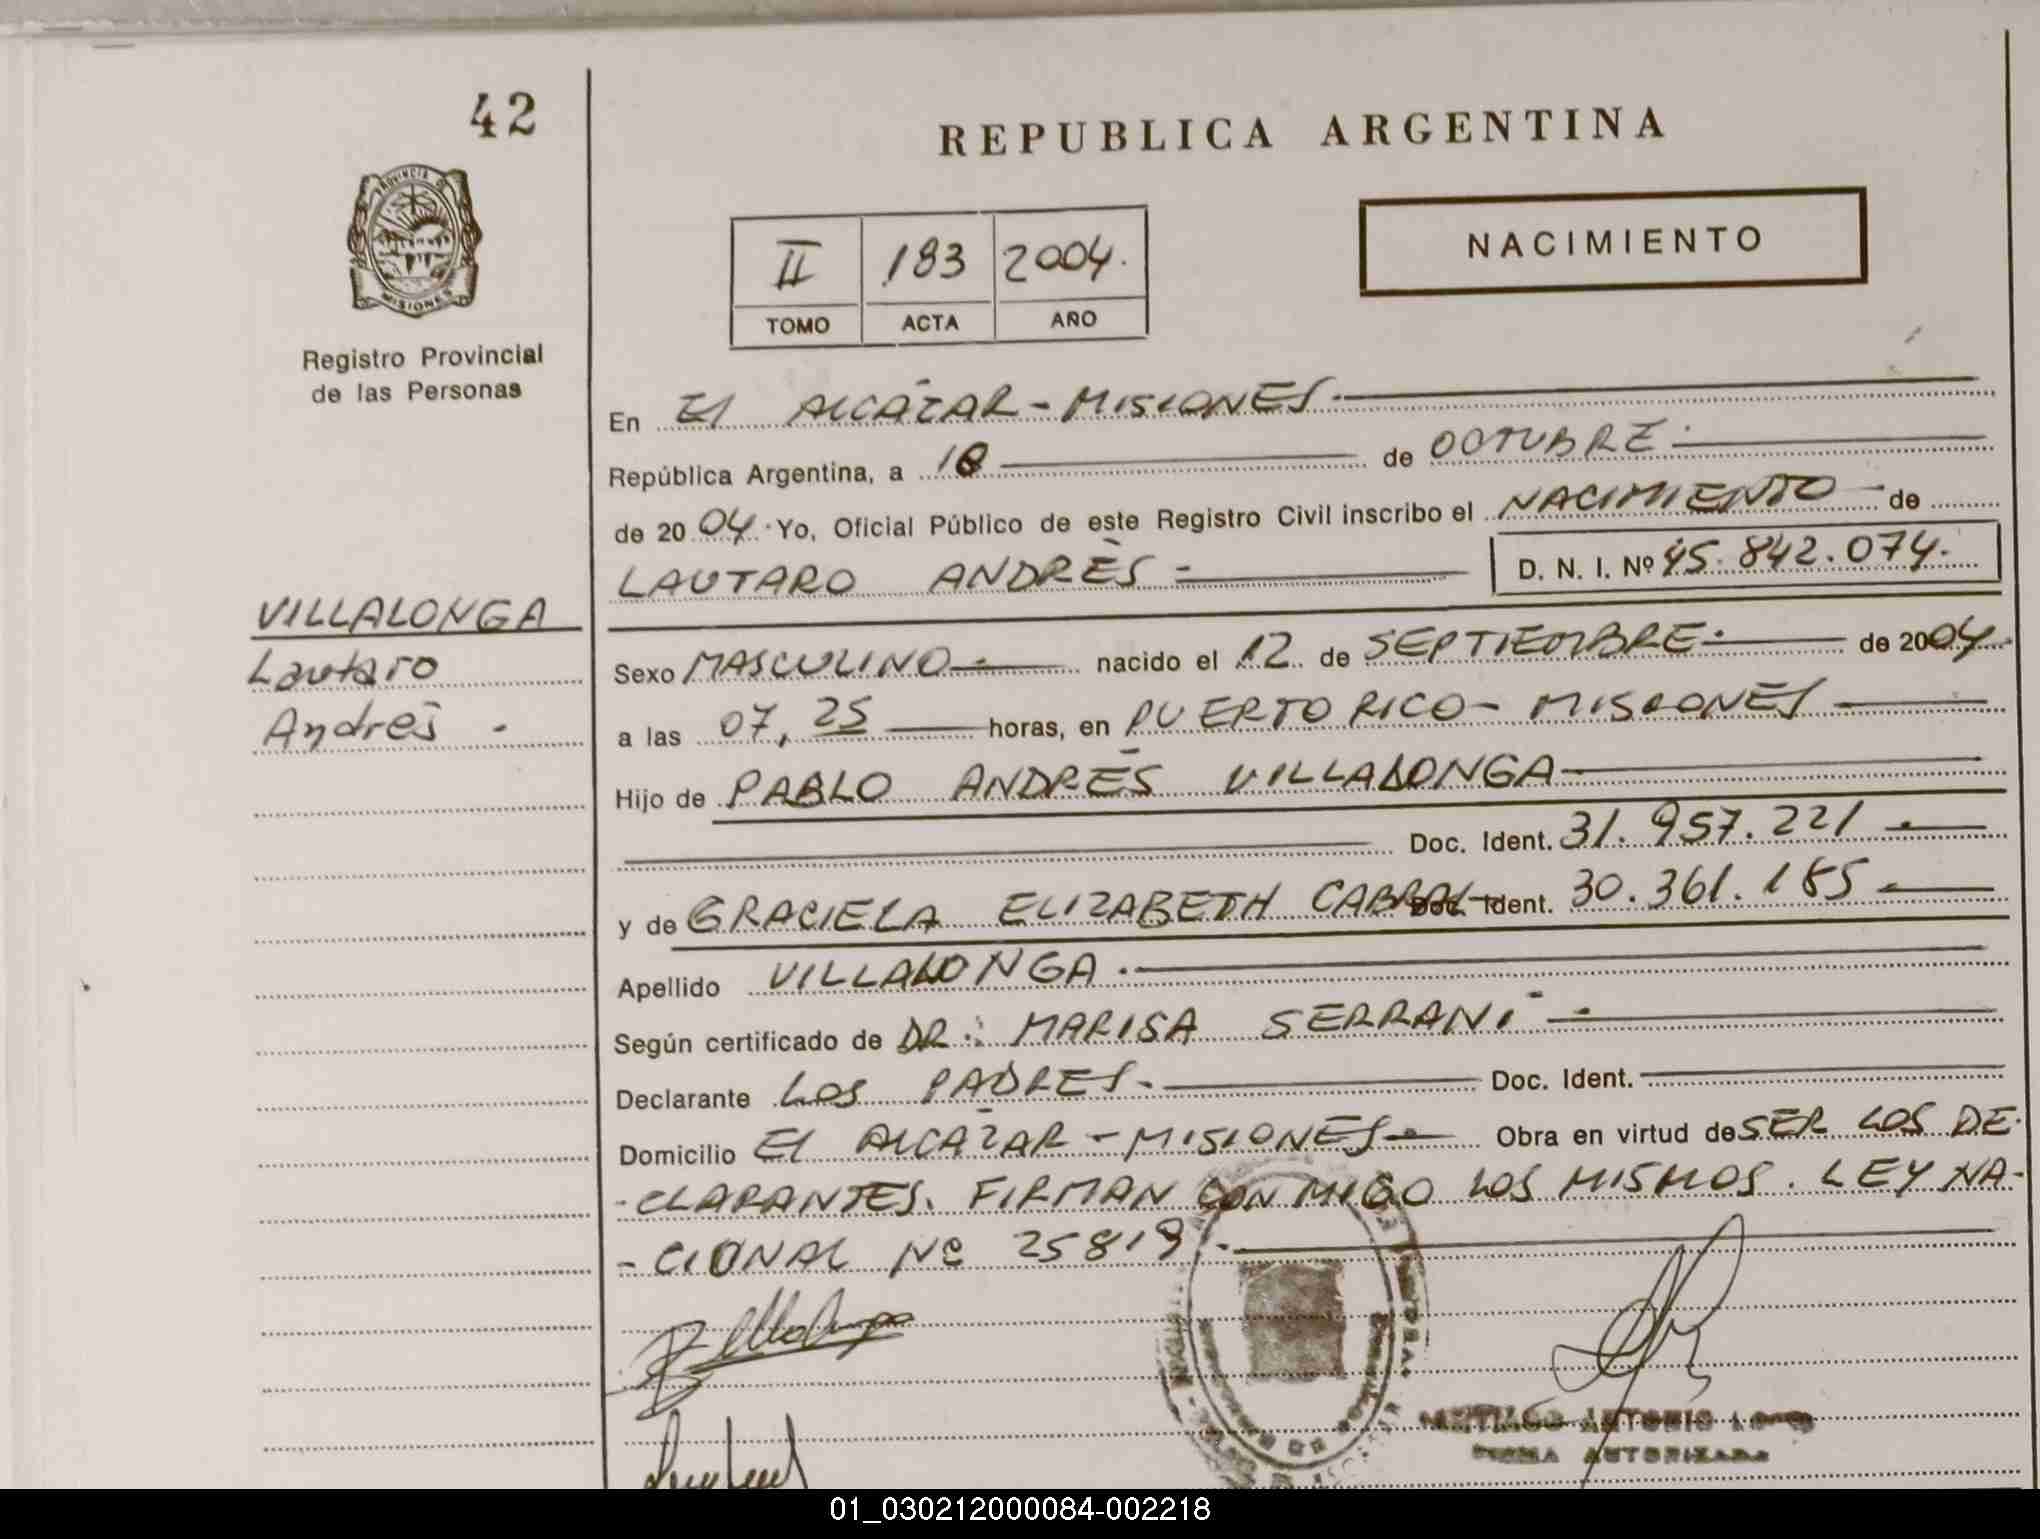 42
REPUBLICA ARGENTINA
PROVINCIA DE
MISIONES
Registro Provincial
de las Personas
NACIMIENTO
II 183 2004.
TOMO ACTA AÑO
En El ALCÁZAR - MISIONES
República Argentina, a 18 de OCTUBRE
de 2004. Yo, Oficial Público de este Registro Civil inscribo el NACIMIENTO de
LAUTARO ANDRÉS D. N. I. Nº 45.842.074.
VILLALONGA
Lautaro
Andrés
Sexo MASCULINO nacido el 12 de SEPTIEMBRE de 2004
a las 07,25 horas, en PUERTO RICO - MISIONES
Hijo de PABLO ANDRÉS VILLALONGA
Doc. Ident. 31.957.221
y de GRACIELA ELIZABETH CABRAL Doc. Ident. 30.361.185
Apellido VILLALONGA
Según certificado de DR: MARISA SERRANI
Declarante LOS PADRES Doc. Ident.
Domicilio El ALCÁZAR - MISIONES Obra en virtud de SER LOS DE-
-CLARANTES. FIRMAN CON MIGO LOS MISMOS. LEY NA-
-CIONAL Nº 25819
SANTIAGO ANTONIO
FIRMA AUTORIZADA
01_030212000084-002218